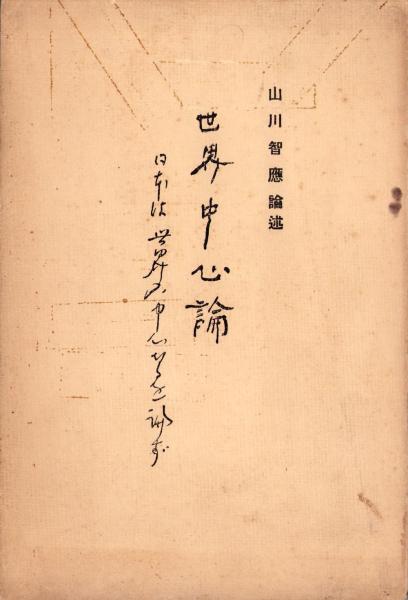 山川智應論述
世界中心論
日本は世界の中心なるを論ず